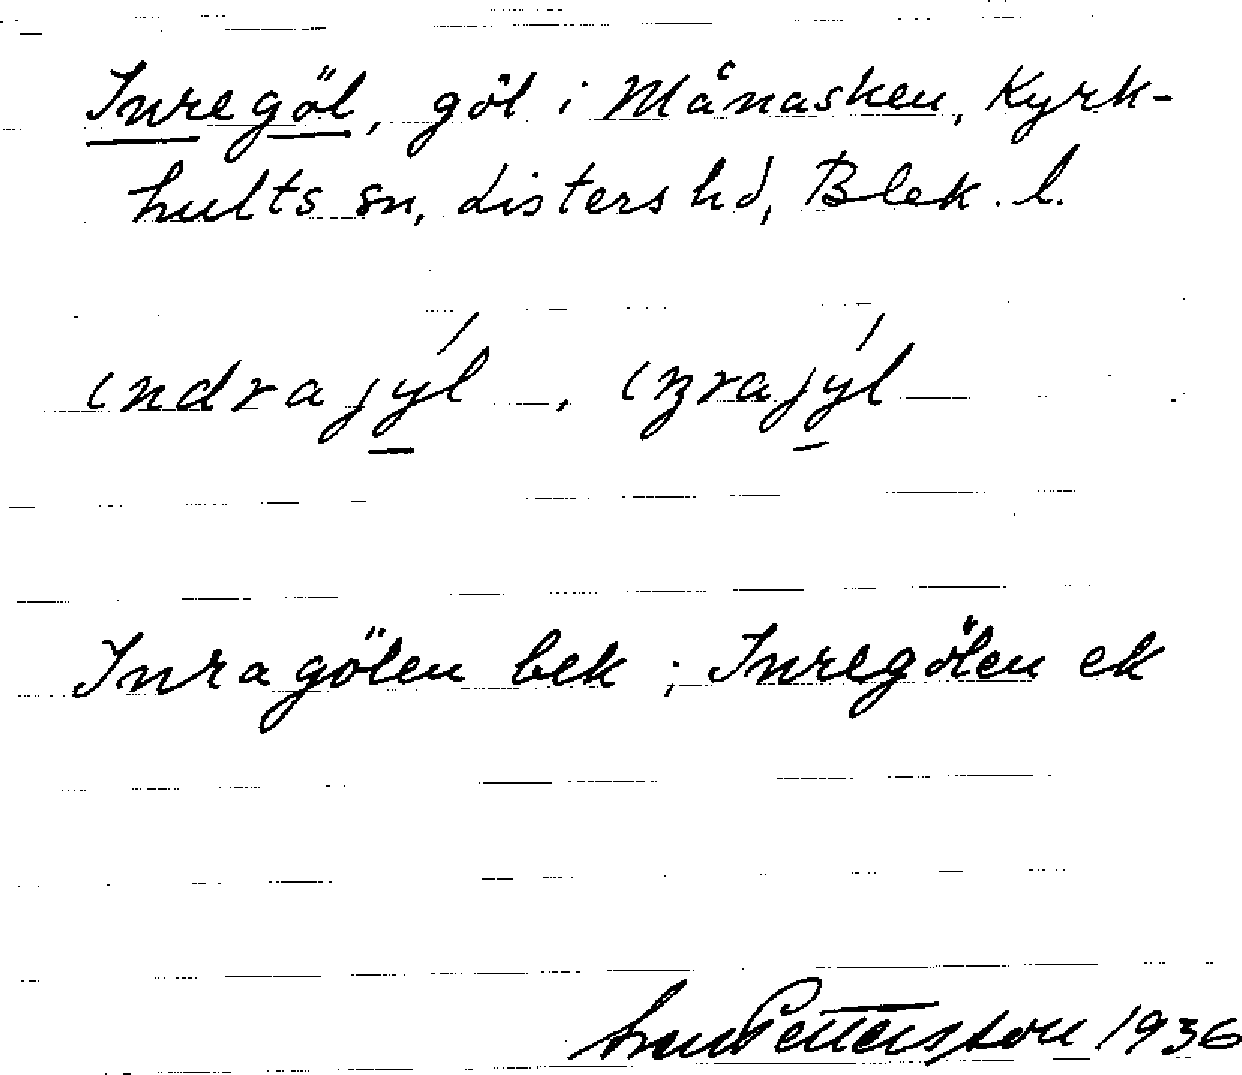 Inregöl, göl i Månasken, Kyrk-
hults sn, Listers hd, Blek. l.
ındrajýl, ınrajýl
Inragölen bek ; Inregölen ek
Pettersson 1936